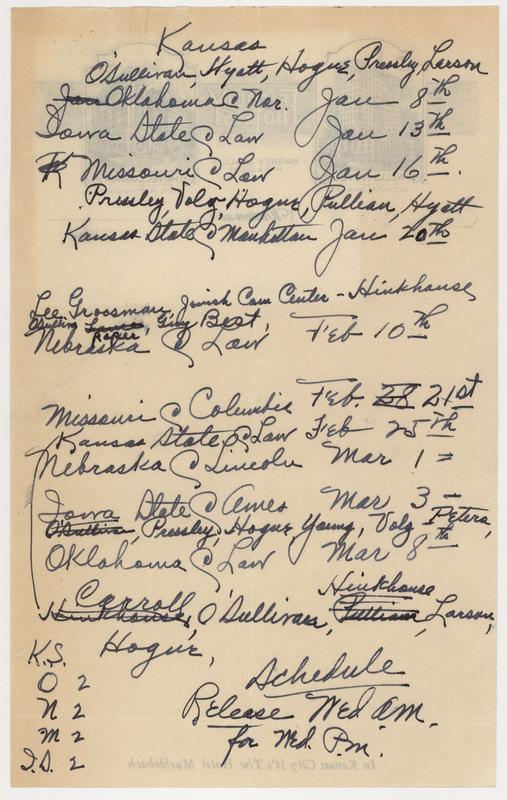 Kansas
O'Sullivan, Hyatt, Hogue, Pressly, Larson
Jan Oklahoma @ Nor. Jan 8th
Iowa State @ Law Jan 13th
K Missouri @ Law Jan 16th.
Pressley, Volz, Hogue, Pullian, Hyatt
Kansas State @ Manhattan Jan 20th
Lee Grossman, Jewish Com Center - Hinkhouse
Best,
Nebraska @ Law Feb 10th
Missouri @ Columbia Feb. 28 21st
Kansas State @ Law Feb 25th
Nebraska @ Lincoln Mar 1
Iowa State @ Ames Mar 3
O'Sullivan, Pressley, Hogue Young, Volz Peters,
Oklahoma @ Law Mar 8th
Carroll Hinkhouse
Hinkhouse, O'Sullivan, Pullian, Larson,
Hogue,
K.S.
O 2
N 2
M 2
I.S. 2
Schedule
Release Wed am.
for Wed. P.m.
In Kansas City It's The Hotel Muehlebach